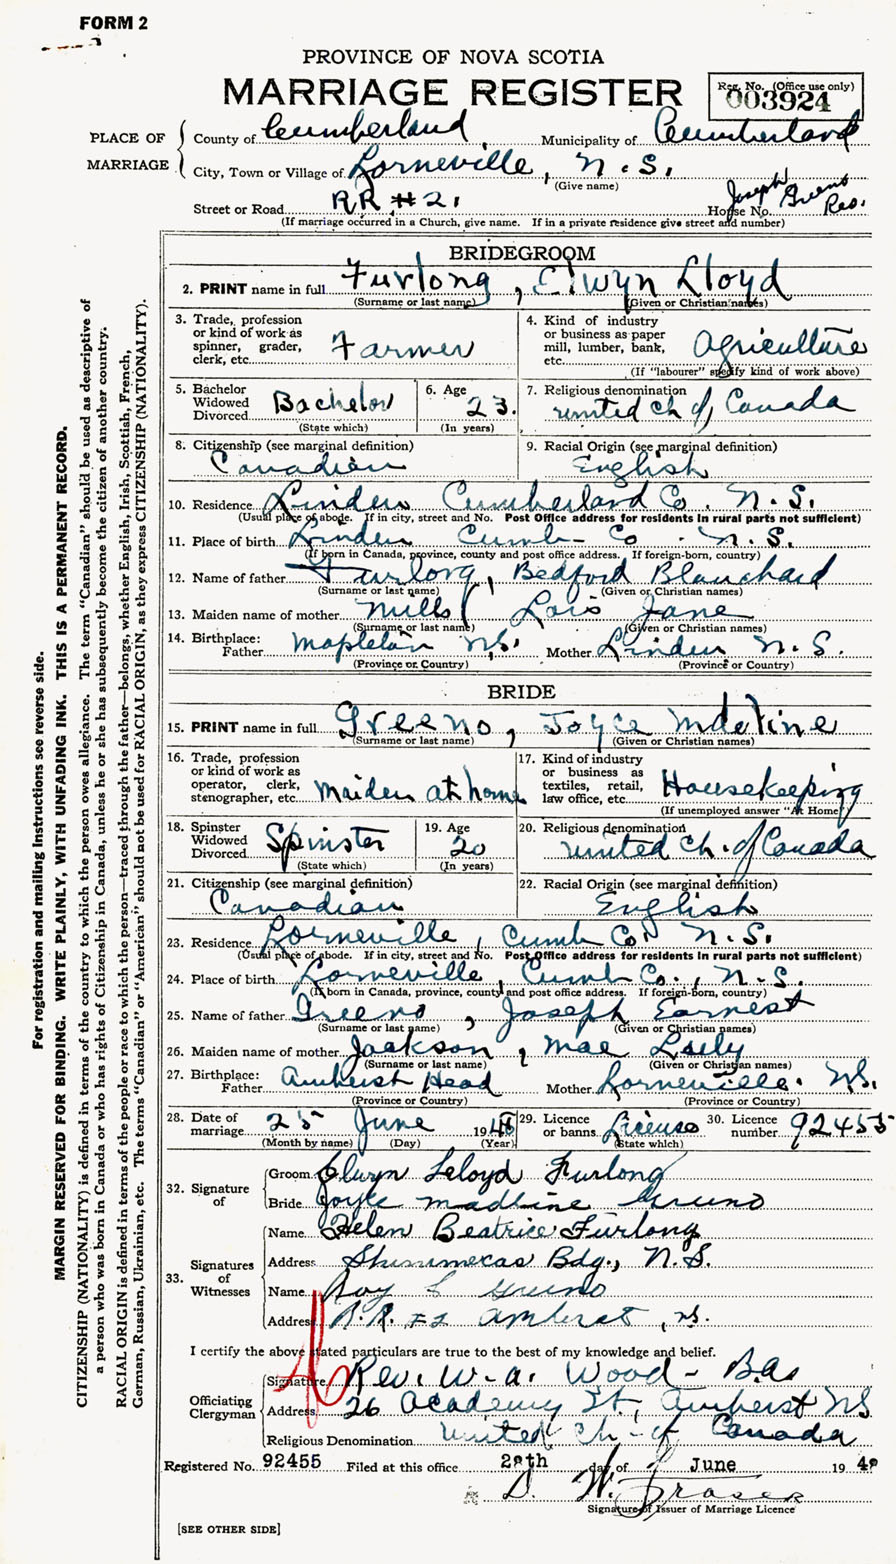 FORM 2
PROVINCE OF NOVA SCOTIA
MARRIAGE REGISTER
Reg. No. (Office use only)
003924
PLACE OF MARRIAGE
County of Cumberland, Municipality of Cumberland
City, Town or Village of Lorneville, N.S.
(Give name)
Street or Road RR #2, House No. Joseph Greeno Res.
(If marriage occurred in a Church, give name. If in a private residence give street and number)
BRIDEGROOM
2. PRINT name in full Furlong, Elwyn Lloyd
(Surname or last name) (Given or Christian names)
3. Trade, profession or kind of work as spinner, grader, clerk, etc. Farmer
4. Kind of industry or business as paper mill, lumber, bank, etc. Agriculture
(If "labourer" specify kind of work above)
5. Bachelor Widowed Divorced Bachelor
(State which)
6. Age 23.
(In years)
7. Religious denomination United Ch of Canada
8. Citizenship (see marginal definition)
Canadian
9. Racial Origin (see marginal definition)
English
10. Residence Linden Cumberland Co. N.S.
(Usual place of abode. If in city, street and No. Post Office address for residents in rural parts not sufficient)
11. Place of birth Linden Cumb- Co. N.S.
(If born in Canada, province, county and post office address. If foreign-born, country)
12. Name of father Furlong, Bedford Blanchard
(Surname or last name) (Given or Christian names)
13. Maiden name of mother Mills Lois Jane
(Surname or last name) (Given or Christian names)
14. Birthplace:
Father Mapleton NS. Mother Linden N.S.
(Province or Country) (Province or Country)
BRIDE
15. PRINT name in full Greeno, Joyce
(Surname or last name) (Given or Christian names)
16. Trade, profession or kind of work as operator, clerk, stenographer, etc. Maiden at home
17. Kind of industry or business as textiles, retail, law office, etc. Housekeeping
(If unemployed answer "At Home")
18. Spinster Widowed Divorced Spinster
(State which)
19. Age 20
(In years)
20. Religious denomination
United Ch. of Canada
21. Citizenship (see marginal definition)
Canadian
22. Racial Origin (see marginal definition)
English
23. Residence Lorneville, Cumb Co. N.S.
(Usual place of abode. If in city, street and No. Post Office address for residents in rural parts not sufficient)
24. Place of birth Lorneville, Cumb Co., N.S.
(If born in Canada, province, county and post office address. If foreign-born, country)
25. Name of father Greeno, Joseph Earnest
(Surname or last name) (Given or Christian names)
26. Maiden name of mother Jackson, Mae
(Surname or last name) (Given or Christian names)
27. Birthplace:
Father Amherst Head Mother Lorneville. NS.
(Province or Country) (Province or Country)
28. Date of marriage 25 June 19
(Month by name) (Day) (Year)
29. Licence or banns License
(State which)
30. Licence number 92455
32. Signature of
Groom Elwyn Lloyd Furlong
Bride Joyce Madline Greeno
33. Signatures of Witnesses
Name Helen Beatrice Furlong
Address Shinimecas Bdg., N.S.
Name Roy Greeno
Address R.R. #2 Amherst, N.S.
I certify the above stated particulars are true to the best of my knowledge and belief.
Officiating Clergyman
Signature Rev. W. A. Wood
Address 26 Academy St, Amherst NS
Religious Denomination United Ch of Canada
Registered No. 92455 Filed at this office 28th day of June 19
D. W. Fraser
Signature of Issuer of Marriage Licence
[SEE OTHER SIDE]
For registration and mailing instructions see reverse side.
MARGIN RESERVED FOR BINDING. WRITE PLAINLY, WITH UNFADING INK. THIS IS A PERMANENT RECORD.
CITIZENSHIP (NATIONALITY) is defined in terms of the country to which the person owes allegiance. The term "Canadian" should be used as descriptive of
a person who was born in Canada or who has rights of Citizenship in Canada, unless he or she has subsequently become the citizen of another country.
RACIAL ORIGIN is defined in terms of the people or race to which the person—traced through the father—belongs, whether English, Irish, Scottish, French,
German, Russian, Ukrainian, etc. The terms "Canadian" or "American" should not be used for RACIAL ORIGIN, as they express CITIZENSHIP (NATIONALITY).